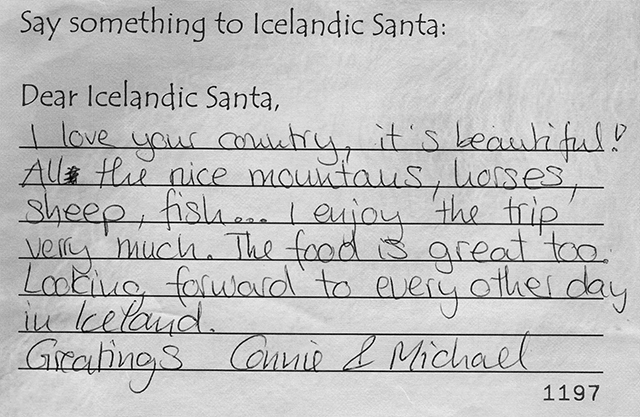 Say something to Icelandic Santa:
Dear Icelandic Santa,
I love your country, it's beautiful!
All the nice mountains, horses,
sheep, fish... I enjoy the trip
verry much. The food is great too.
Looking forward to every other day
in Iceland.
Greatings Connie & Michael
1197